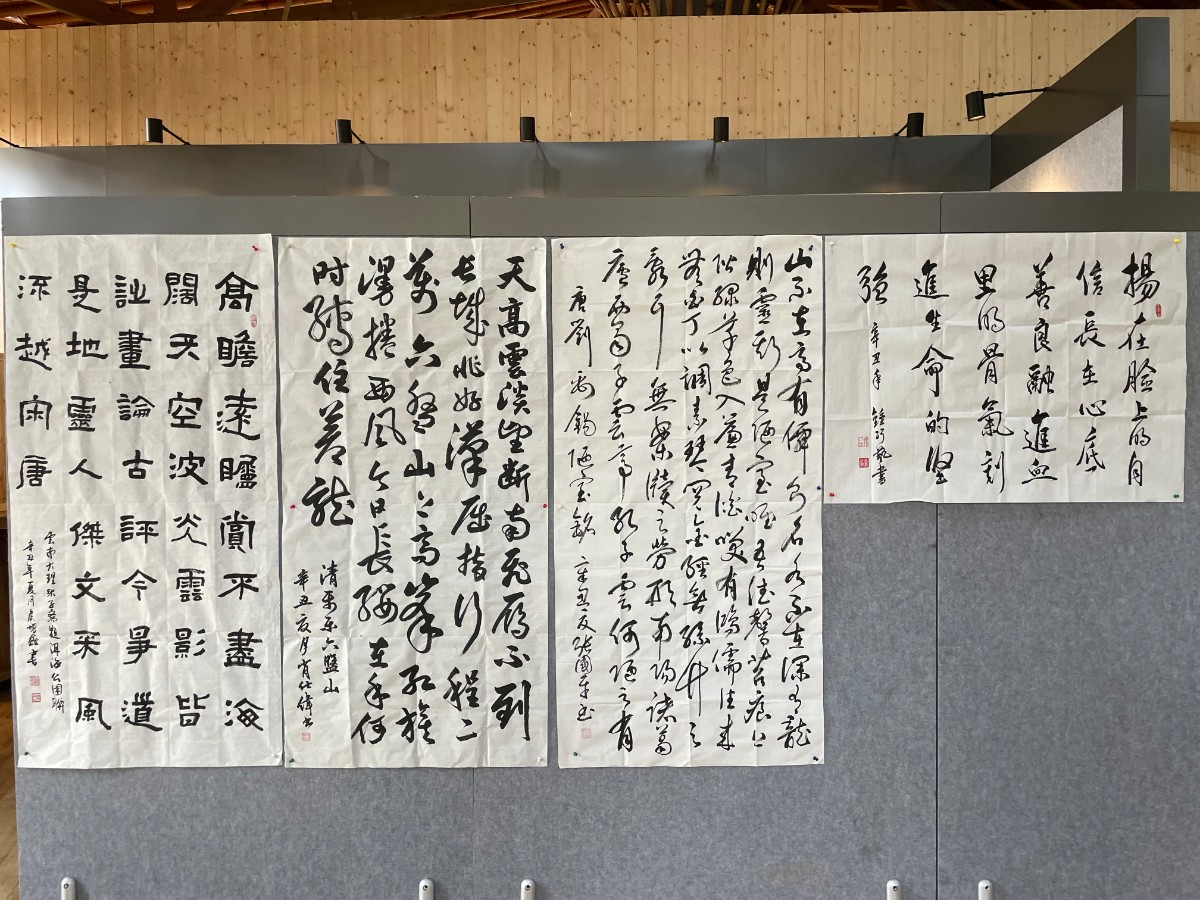 高瞻遠矚賞不盡海
闊天空波光雲影皆
詩畫論古評今爭道
是地靈人傑文采風
流越唐
雲南大理題洱海公園聯
辛丑年夏月書
天高雲淡望斷南飛雁不到
長城非好漢屈指行程二
萬六盤山上高峯紅旗
漫捲西風今日長纓在手何
時縛住蒼龍
清平樂六盤山
辛丑夏月肖仕偉書
山不在高有僊則名水不在深有龍
則靈斯是陋室唯吾德馨苔痕上
階綠草色入簾青談笑有鴻儒往來
無白丁可以調素琴閱金經無絲竹之
亂耳無案牘之勞形南陽諸葛
廬西蜀子雲亭孔子雲何陋之有
唐劉禹錫陋室銘 辛丑夏張國平書
揚在臉上的自
信長在心底
善良融進血
里的骨氣刻
進生命的堅
強
辛丑年 書